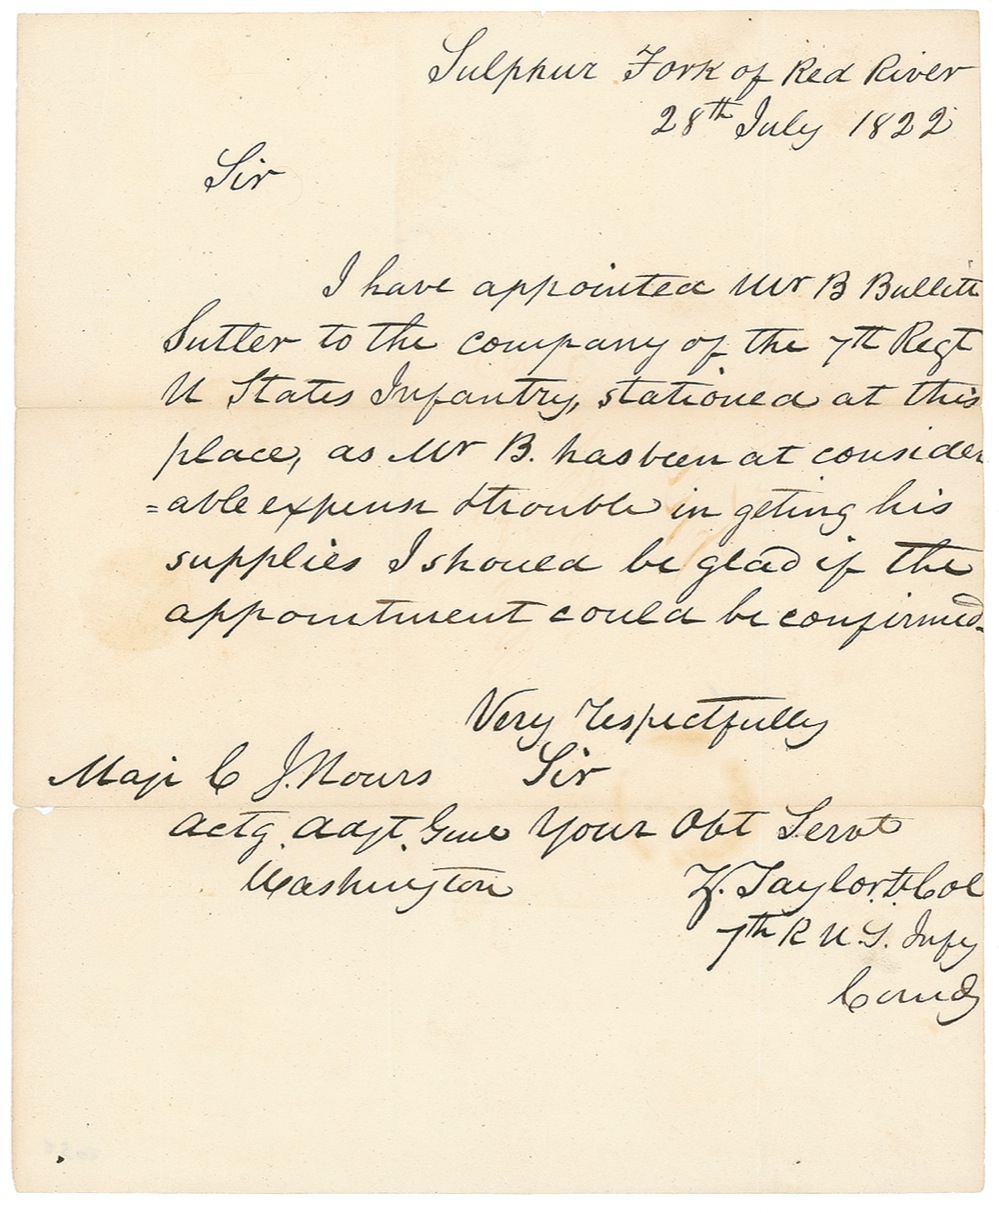 Sulphur Fork of Red River
28th July 1822
Sir
I have appointed Mr B Bullitt
Sutler to the company of the 7th Regt
U States Infantry, stationed at this
place, as Mr B. has been at consider
=able expense & trouble in geting his
supplies I should be glad if the
appointment could be confirmed.
Very respectfully
Sir
Majr C J. Nours
Actg. Adjt. Genl Your Obt Servt
Washington
Z. Taylor. Lt. Col
7th R U. S. Infy
Comdg